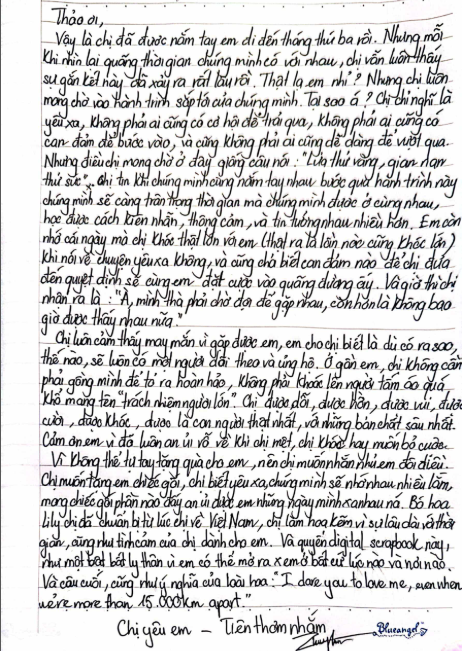 Thảo ơi,
Vậy là chị đã được nắm tay em đi đến tháng thứ ba rồi. Nhưng mỗi
khi nhìn lại quãng thời gian chúng mình có với nhau, chị vẫn luôn thấy
sự gắn kết này đã xảy ra rất lâu rồi. Thật lạ em nhỉ? Nhưng chị luôn
mong chờ vào hành trình sắp tới của chúng mình. Tại sao á? Chị chỉ nghĩ là
yêu xa, không phải ai cũng có cơ hội để trải qua, không phải ai cũng có
can đảm để bước vào, và cũng không phải ai cũng dễ dàng để vượt qua.
Nhưng điều chị mong chờ ở đây giống câu nói: "Lửa thử vàng, gian nan
thử sức". Chị tin khi chúng mình cùng nắm tay nhau bước qua hành trình này
chúng mình sẽ càng trân trọng thời gian mà chúng mình được ở cùng nhau,
học được cách kiên nhẫn, thông cảm, và tin tưởng nhau nhiều hơn. Em còn
nhớ cái ngày mà chị khóc thật lớn với em (thật ra là lần nào cũng khóc lớn)
khi nói về chuyện yêu xa không, và cũng chả biết can đảm nào để chị đưa
đến quyết định sẽ cùng em đặt cược vào quãng đường ấy. Và giờ thì chị
nhận ra là: "À, mình thà phải chờ đợi để gặp nhau, còn hơn là không bao
giờ được thấy nhau nữa."
Chị luôn cảm thấy may mắn vì gặp được em, em cho chị biết là dù có ra sao,
thế nào, sẽ luôn có một người dõi theo và ủng hộ. Ở gần em, chị không cần
phải gồng mình để tỏ ra hoàn hảo, không phải khoác lên người tấm áo quá
khổ mang tên "trách nhiệm người lớn". Chị được dỗi, được hờn, được vui, được
cười, được khóc, được là con người thật nhất, với những bản chất sâu nhất.
Cảm ơn em vì đã luôn an ủi vỗ về khi chị mệt, chị khóc hay muốn bỏ cuộc.
Vì không thể tự tay tặng quà cho em, nên chị muốn nhắn nhủ em đôi điều.
Chị muốn tặng em chiếc gối, chị biết yêu xa, chúng mình sẽ nhớ nhau nhiều lắm,
mong chiếc gối phần nào đấy an ủi được em những ngày mình xa nhau ná. Bó hoa
lily chị đã chuẩn bị từ lúc chị về Việt Nam, chị làm hoa kẽm vì sự lâu dài và thời
gian, cũng như tình cảm của chị dành cho em. Và quyển digital scrapbook này,
như một bất bất ly thân vì em có thể mở ra xem ở bất cứ lúc nào và nơi nào.
Và câu cuối, cũng như ý nghĩa của loài hoa: "I dare you to love me, even when
we're more than 15.000km apart."
Chị yêu em – Tiên thơm nhắm
Blueangel